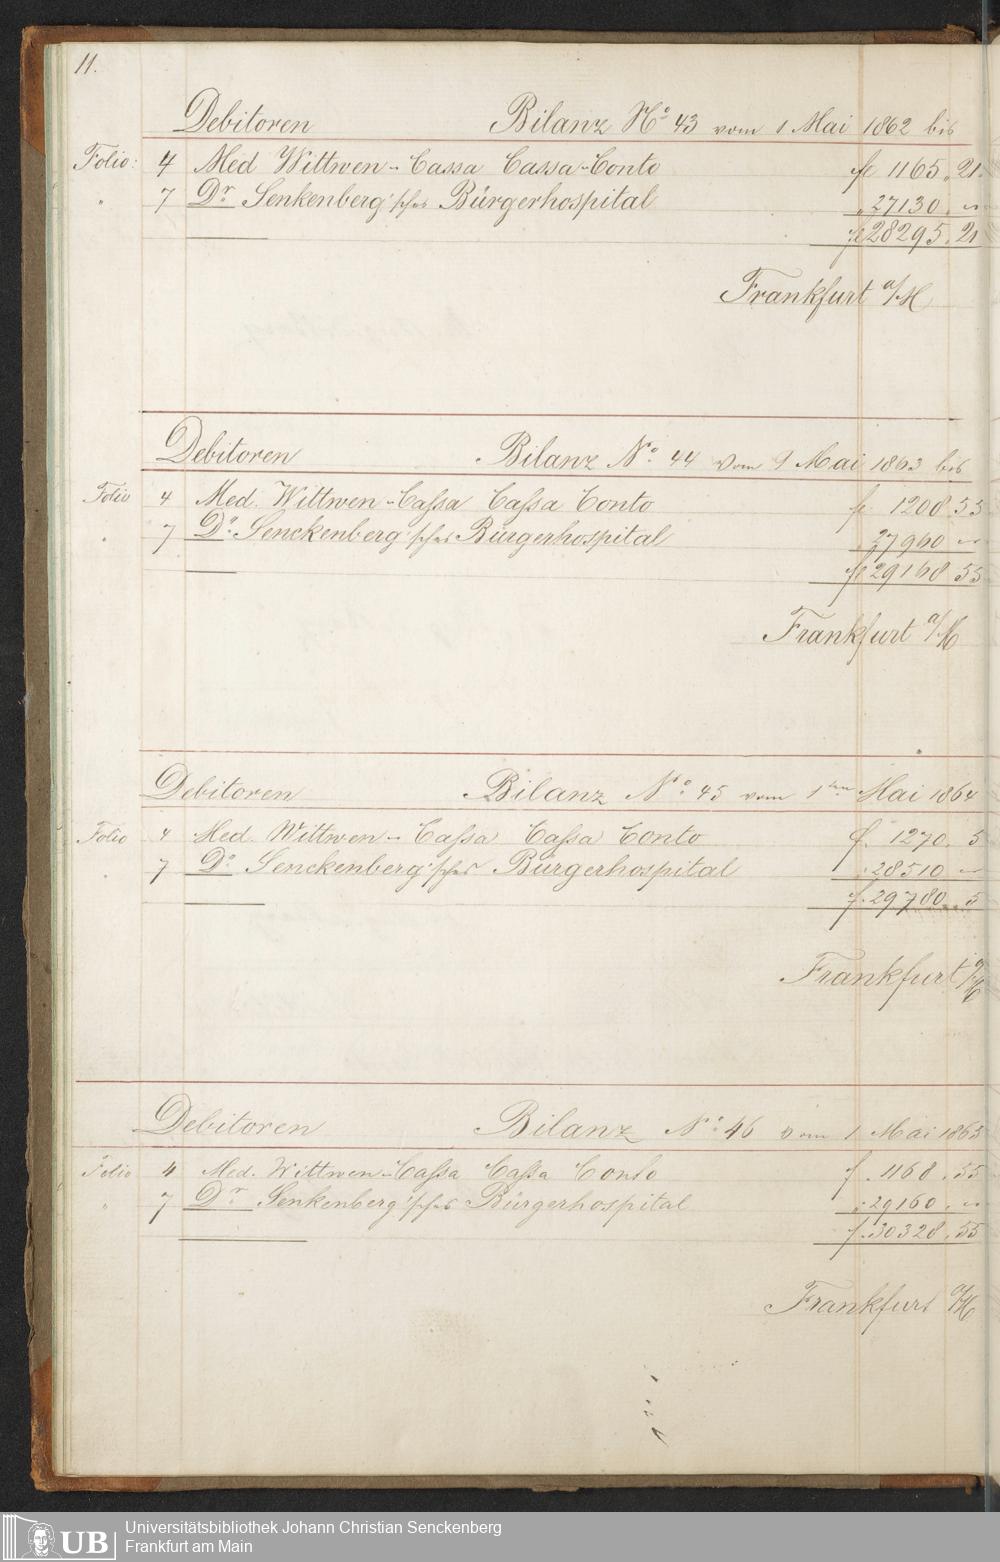 11.
Debitoren Bilanz No. 43 vom 1 Mai 1862 bis
Folio: 4 Med Wittwen-Cassa Cassa-Conto fl 1165. 21.
" 7 Dr. Senkenberg'sches Bürgerhospital " 27130. "
fl 28295. 21
Frankfurt a/M
Debitoren Bilanz No. 44 vom 9 Mai 1863 bis
Folio 4 Med. Wittwen-Caſsa Caſsa Conto f. 1208 55
" 7 Dr. Senckenberg'sches Bürgerhospital 27960 "
fl 29168 55
Frankfurt a/M
Debitoren Bilanz No. 45 vom 1ten Mai 1864
Folio 4 Med. Wittwen-Caſsa Caſsa Conto f. 1270. 5
" 7 Dr. Senckenberg'sches Bürgerhospital " 28510 "
f. 29780. 5
Frankfurt a/M
Debitoren Bilanz No. 46 vom 1 Mai 1865
Folio 4 Med. Wittwen-Caſsa Caſsa Conto f. 1168. 55
" 7 Dr. Senkenberg'sches Bürgerhospital " 29160. "
f. 30328. 55
Frankfurt a/M
UB Universitätsbibliothek Johann Christian Senckenberg
Frankfurt am Main